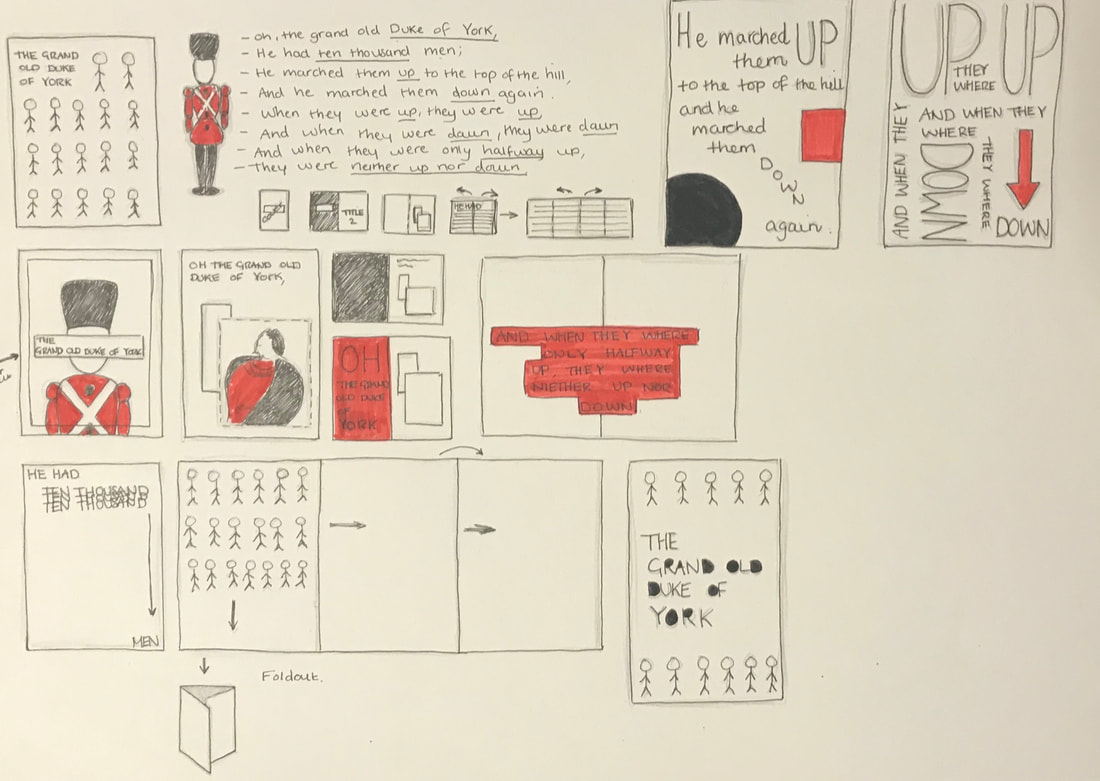 THE GRAND
OLD DUKE
OF YORK
- Oh, the grand old Duke of York,
- He had ten thousand men;
- He marched them up to the top of the hill,
- And he marched them down again.
- When they were up, they were up,
- And when they were down, they were down
- And when they were only halfway up,
- They were neither up nor down
TITLE
2
HE HAD
He marched UP
them
to the top of the hill
and he
marched
them
DOWN
again.
UP UP
THEY
WHERE
AND WHEN THEY
AND WHEN THEY
WHERE
DOWN
THEY WHERE
DOWN
THE
GRAND OLD DUKE OF YORK
OH THE GRAND OLD
DUKE OF YORK,
OH
THE GRAND
OLD DUKE
OF
YORK
AND WHEN THEY WHERE
ONLY HALFWAY
UP, THEY WHERE
NIETHER UP NOR
DOWN
HE HAD
TEN THOUSAND
TEN THOUSAND
MEN
Foldout.
THE
GRAND OLD
DUKE OF
YORK